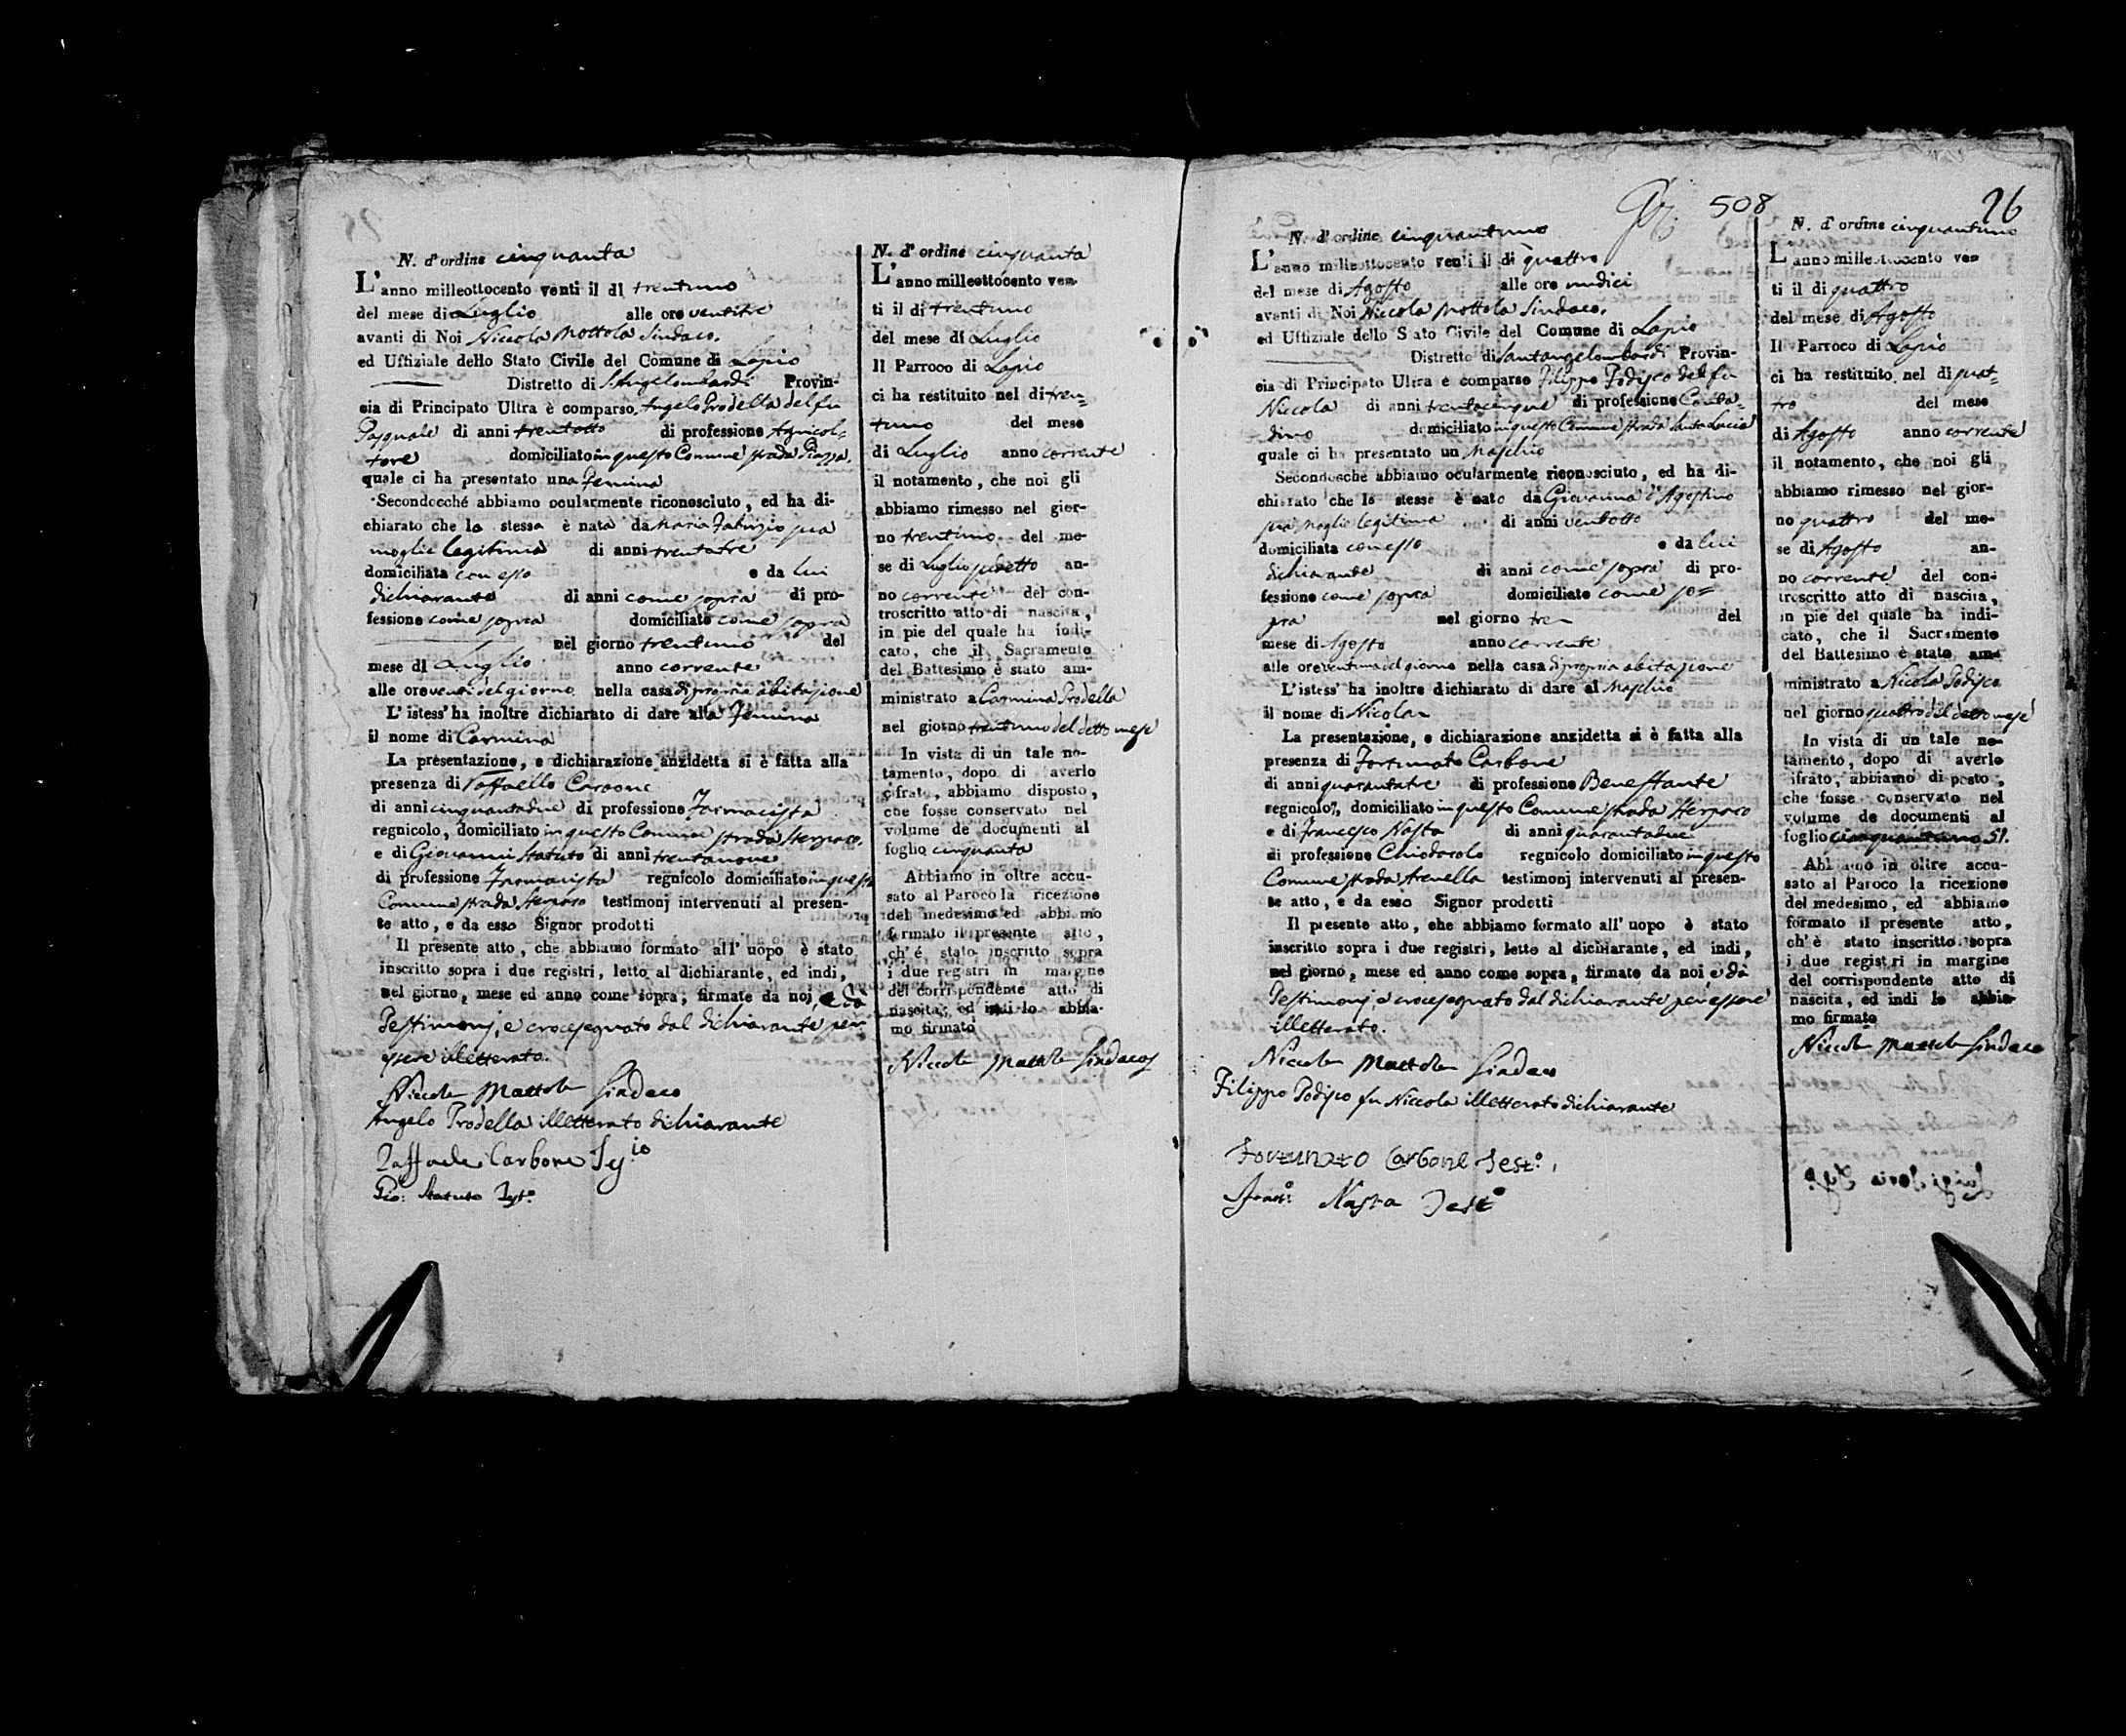 N. d'ordine cinquanta
L'anno milleottocento venti il dì trentuno
del mese di Luglio alle ore ventitre
avanti di Noi Niccola Mottola Sindaco.
ed Uffiziale dello Stato Civile del Comune di Lapio
Distretto di S. Angelombardi Provin-
cia di Principato Ultra è comparso Angelo Prodella del fu
Pasquale di anni trentotto di professione Agricol-
tore domiciliato in questo Comune strada Piazza.
quale ci ha presentato una Femina
Secondocché abbiamo ocularmente riconosciuto, ed ha di-
chiarato che la stessa è nata da Maria Fabrizio sua
moglie legitima di anni trentatre
domiciliata con esso e da lui
dichiarante di anni come sopra di pro-
fessione come sopra domiciliato come sopra
nel giorno trentuno del
mese di Luglio anno corrente
alle ore venti del giorno nella casa di propria abitazione
L'istess' ha inoltre dichiarato di dare alla Femina
il nome di Carmina
La presentazione, e dichiarazione anzidetta si è fatta alla
presenza di Raffaello Carbone
di anni cinquantadue di professione Farmacista
regnicolo, domiciliato in questo Comune strada Sterparo.
e di Giovanni Statuto di anni trentanove
di professione Farmacista regnicolo domiciliato in questo
Comune strada Sterparo testimonj intervenuti al presen-
te atto, e da esso Signor prodotti
Il presente atto, che abbiamo formato all' uopo è stato
inscritto sopra i due registri, letto al dichiarante, ed indi,
nel giorno, mese ed anno come sopra, firmate da noi, e dà
Testimonj, e crocesegnato dal dichiarante per
essere illetterato.
Niccola Mottola Sindaco
Angelo Prodella illetterato dichiarante
Raffaele Carbone
Gio: Statuto
N. d'ordine cinquanta
L'anno milleottocento ven-
ti il di trentuno
del mese di Luglio
Il Parroco di Lapio
ci ha restituito nel di tren-
tuno del mese
di Luglio anno corrente
il notamento, che noi gli
abbiamo rimesso nel gior-
no trentuno del me-
se di Luglio sudetto an-
no corrente del con-
troscritto atto di nascita,
in pie del quale ha indi-
cato, che il Sacramento
del Battesimo è stato am-
ministrato a Carmina Prodella
nel giorno trentuno del detto mese
In vista di un tale no-
tamento, dopo di averlo
cifrato, abbiamo disposto,
che fosse conservato nel
volume de documenti al
foglio cinquanta
Abbiamo in oltre accu-
sato al Paroco la ricezione
del medesimo ed abbiamo
formato il presente atto,
ch'é stato inscritto sopra
i due registri in margine
del corrispondente atto di
nascita, ed indi lo abbia-
mo firmato
Niccola Mottola Sindaco
508
26
N. d'ordine cinquantuno
L'anno milleottocento venti il dì quattro
del mese di Agosto alle ore undici
avanti di Noi Niccola Mottola Sindaco.
ed Uffiziale dello Stato Civile del Comune di Lapio
Distretto di Santangelombardi Provin-
cia di Principato Ultra è comparso Filippo Todisco del fu
Niccola di anni trentacinque di professione Conta-
dino domiciliato in questo Comune strada Santa Lucia
quale ci ha presentato un Maschio
Secondocche abbiamo ocularmente riconosciuto, ed ha di-
chiarato che lo stesso è nato da Giovanna d'Agostino
sua Moglie legitima di anni ventotto
domiciliata con esso e da lui
dichiarante di anni come sopra di pro-
fessione come sopra domiciliato come so=
pra nel giorno tre del
mese di Agosto anno corrente
alle ore ventuna del giorno nella casa di propria abitazione
L'istess' ha inoltre dichiarato di dare al Maschio
il nome di Nicola
La presentazione, e dichiarazione anzidetta si è fatta alla
presenza di Fortunato Carbone
di anni quarantatre di professione Benestante
regnicolo, domiciliato in questo Comune strada Sterparo
e di Francesco Nasta di anni quarantadue
di professione Chiodarolo regnicolo domiciliato in questo
Comune strada testimonj intervenuti al presen-
te atto, e da esso Signor prodotti
Il presente atto, che abbiamo formato all' uopo è stato
inscritto sopra i due registri, letto al dichiarante, ed indi,
nel giorno, mese ed anno come sopra, firmate da noi e dà
Testimonj, e crocesegnato dal dichiarante per essere
illetterato.
Niccola Mottola Sindaco
Filippo Todisco fu Niccola illetterato dichiarante
Fortunato Carbone Testo.
Nasta Testo
N. d'ordine cinquantuno
L'anno milleottocento ven
ti il di quattro
del mese di Agosto
Il Parroco di Lapio
ci ha restituito nel di quat-
tro del mese
di Agosto anno corrente
il notamento, che noi gli
abbiamo rimesso nel gior-
no quattro del me-
se di Agosto an-
no corrente del con-
troscritto atto di nascita,
in pie del quale ha indi-
cato, che il Sacramento
del Battesimo è stato am-
ministrato a Nicola Todisco
nel giorno quattro del detto mese
In vista di un tale no-
tamento, dopo di averlo
cifrato, abbiamo disposto,
che fosse conservato nel
volume de documenti al
foglio cinquantuno 51.
Abbiamo in oltre accu-
sato al Paroco la ricezione
del medesimo, ed abbiamo
formato il presente atto,
ch'è stato inscritto sopra
i due registri in margine
del corrispondente atto di
nascita, ed indi lo abbia-
mo firmato
Niccola Mottola Sindaco